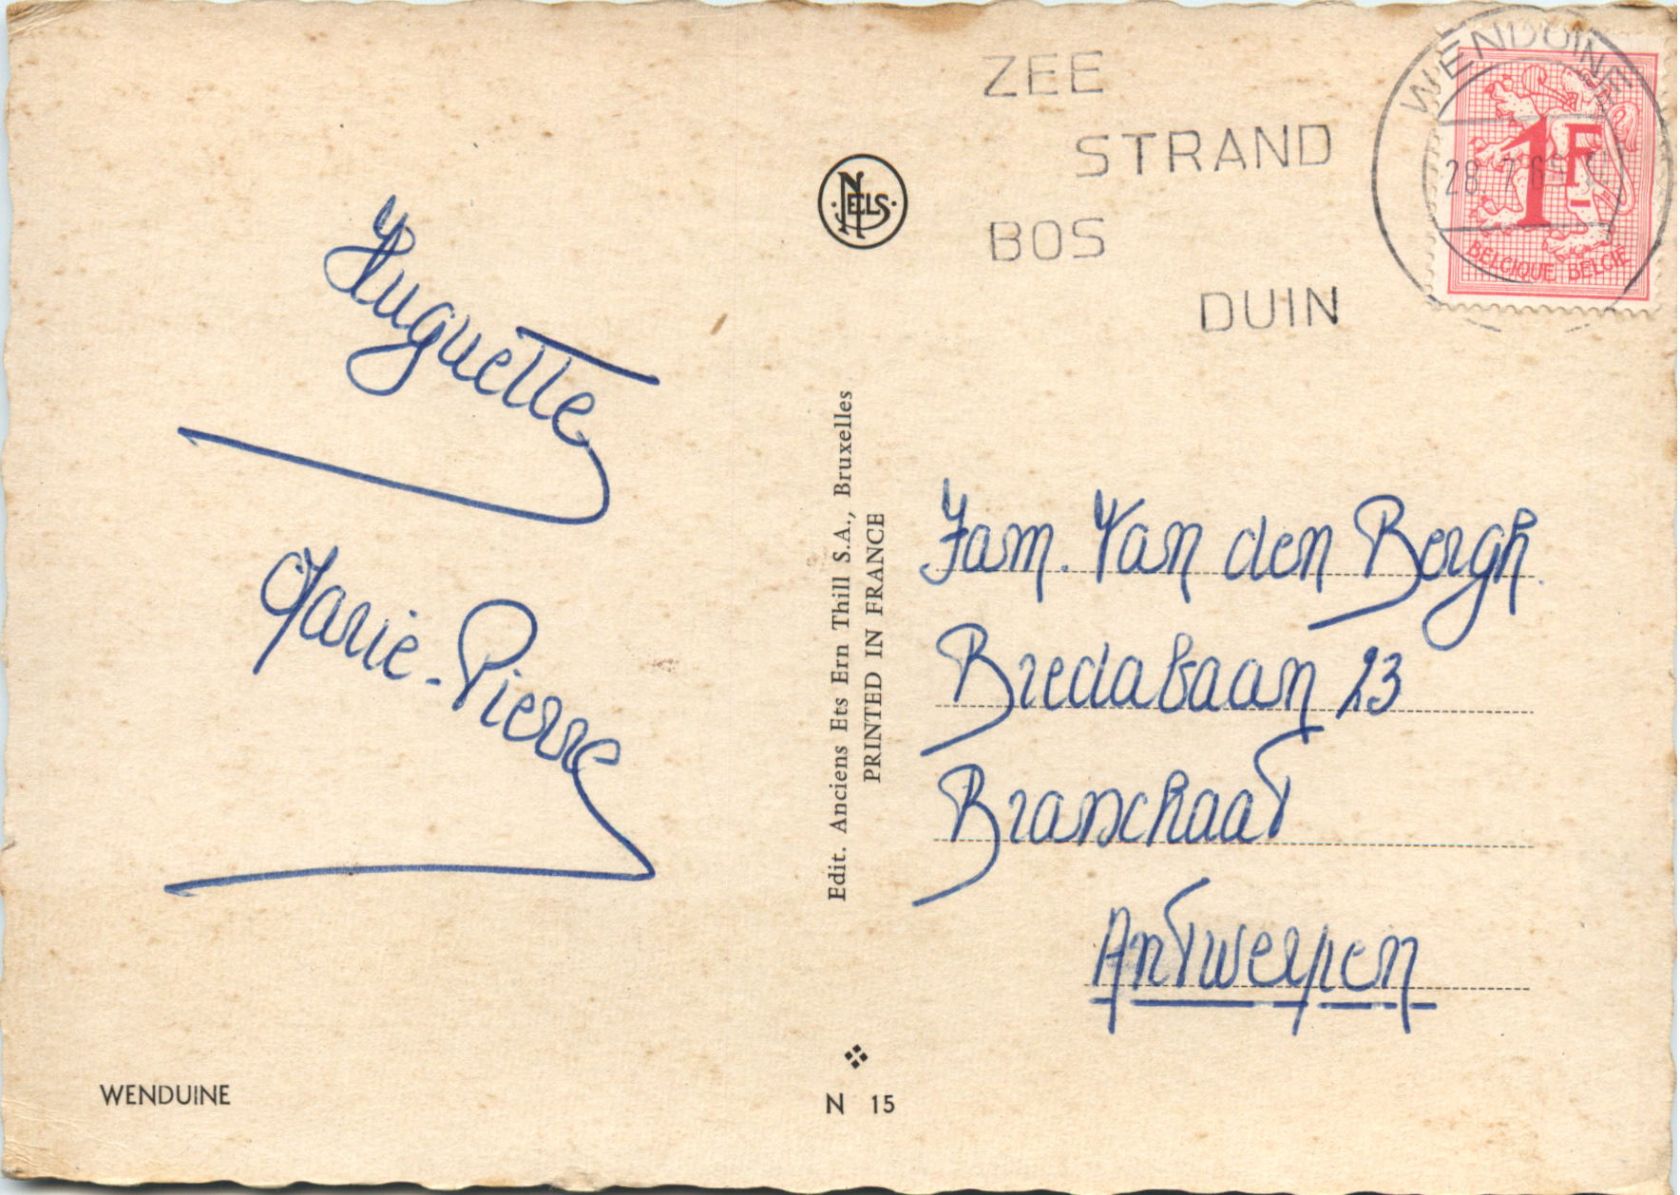 Huguette
Marie-Pierre
WENDUINE
NELS
Edit. Anciens Ets Ern Thill S.A., Bruxelles
PRINTED IN FRANCE
N 15
ZEE
STRAND
BOS
DUIN
WENDUINE
28 7 65
1F
BELGIQUE BELGIË
Fam. Van den Bergh.
Bredabaan 23
Branschaat
Antwerpen